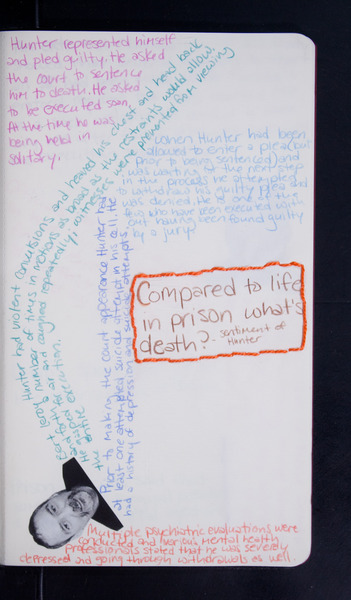 Hunter represented himself
and pled guilty. He asked
the court to sentence
him to death. He asked
to be executed soon
At the time he was
being held in
solitary.
Hunter had violent convulsions and heaved his chest and head back
number of times in motions as broad as the restraints would allow.
and coughed repeatedly; witnesses were prevented from viewing
execution.
When Hunter had been
allowed to enter a plea (but
prior to being sentenced) and
was waiting at the next step
in the process he attempted
to withdraw his guilty plea and
was denied. He is one of the
few who have been executed with
out having been found guilty
by a jury.
Prior to making the court appearance Hunter had
at least one attempted suicide attempt in his cell. He
had a history of depression and suicide attempts.
Compared to life
in prison what's
death? - sentiment of
Hunter
Multiple psychiatric evaluations were
conducted and various mental health
professionals stated that he was severely
depressed and going through withdrawals as well.